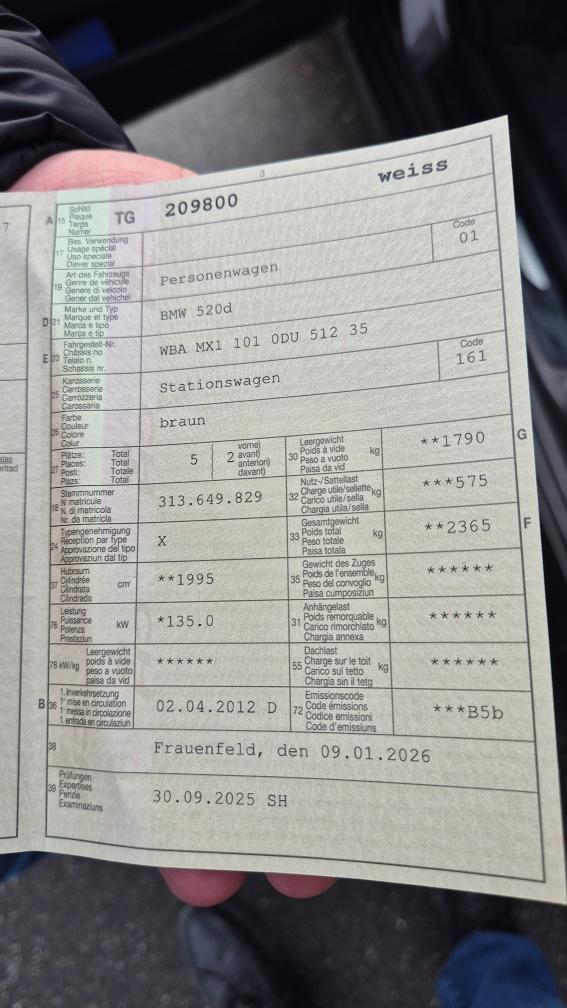 3
7
A 15 Schild Plaque Targa Numer TG 209800 weiss
17 Bes. Verwendung Usage spécial Uso speciale Diever spezial Code 01
19 Art des Fahrzeugs Genre de véhicule Genere di veicolo Gener dal vehichel Personenwagen
D 21 Marke und Typ Marque et type Marca e tipo Marca e tip BMW 520d
E 23 Fahrgestell-Nr. Châssis no Telaio n. Schassis nr. WBA MX1 101 0DU 512 35
25 Karosserie Carrosserie Carrozzeria Carossaria Stationswagen Code 161
26 Farbe Couleur Colore Colur braun
27 Plätze: Total Places: Total Posti: Totale Plazs: Total 5 2 vorne) avant) anteriori) davant)
30 Leergewicht Poids à vide Peso a vuoto Paisa da vid kg **1790 G
18 Stammnummer N° matricule N. di matricola Nr. da matricla 313.649.829
32 Nutz-/Sattellast Charge utile/sellette Carico utile/sella Chargia utila/sella kg ***575
24 Typengenehmigung Réception par type Approvazione del tipo Approvaziun dal tip X
33 Gesamtgewicht Poids total Peso totale Paisa totala kg **2365 F
37 Hubraum Cylindrée Cilindrata Cilindrada cm³ **1995
35 Gewicht des Zuges Poids de l'ensemble Peso del convoglio Paisa cumposiziun kg ******
76 Leistung Puissance Potenza Prestaziun kW *135.0
31 Anhängelast Poids remorquable Carico rimorchiato Chargia annexa kg ******
78 kW/kg Leergewicht poids à vide peso a vuoto paisa da vid ******
55 Dachlast Charge sur le toit Carico sul tetto Chargia sin il tetg kg ******
B 36 1. Inverkehrsetzung 1re mise en circulation 1a messa in circolazione 1. entrada en circulaziun 02.04.2012 D
72 Emissionscode Code émissions Codice emissioni Code d'emissiuns ***B5b
38 Frauenfeld, den 09.01.2026
39 Prüfungen Expertises Perizie Examinaziuns 30.09.2025 SH